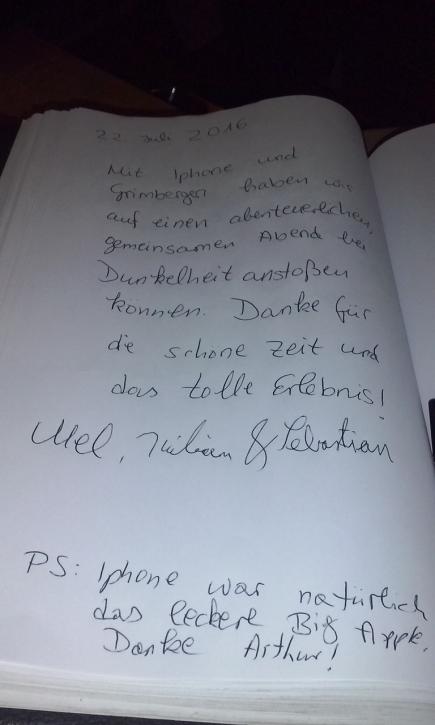 22. Juli 2016
Mit Iphone und
Grimbergen haben wir
auf einen abenteuerlichen,
gemeinsamen Abend bei
Dunkelheit anstoßen
können. Danke für
die schöne Zeit und
das tolle Erlebnis!
Mel, & Sebastian
PS: Iphone war natürlich
das leckere Big Apple.
Danke Arthur!